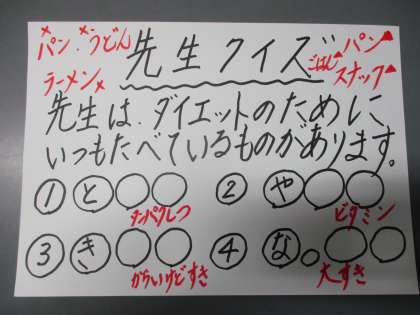 ×パン.×うどん
ラーメン×
先生クイズ
ごはん▲パン▲
スナック▲
先生は、ダイエットのために
いつもたべているものがあります。
① と○○ ② や○○
タンパクしつ ビタミン
③ き○○ ④ な。○○
からいけどすき 大すき